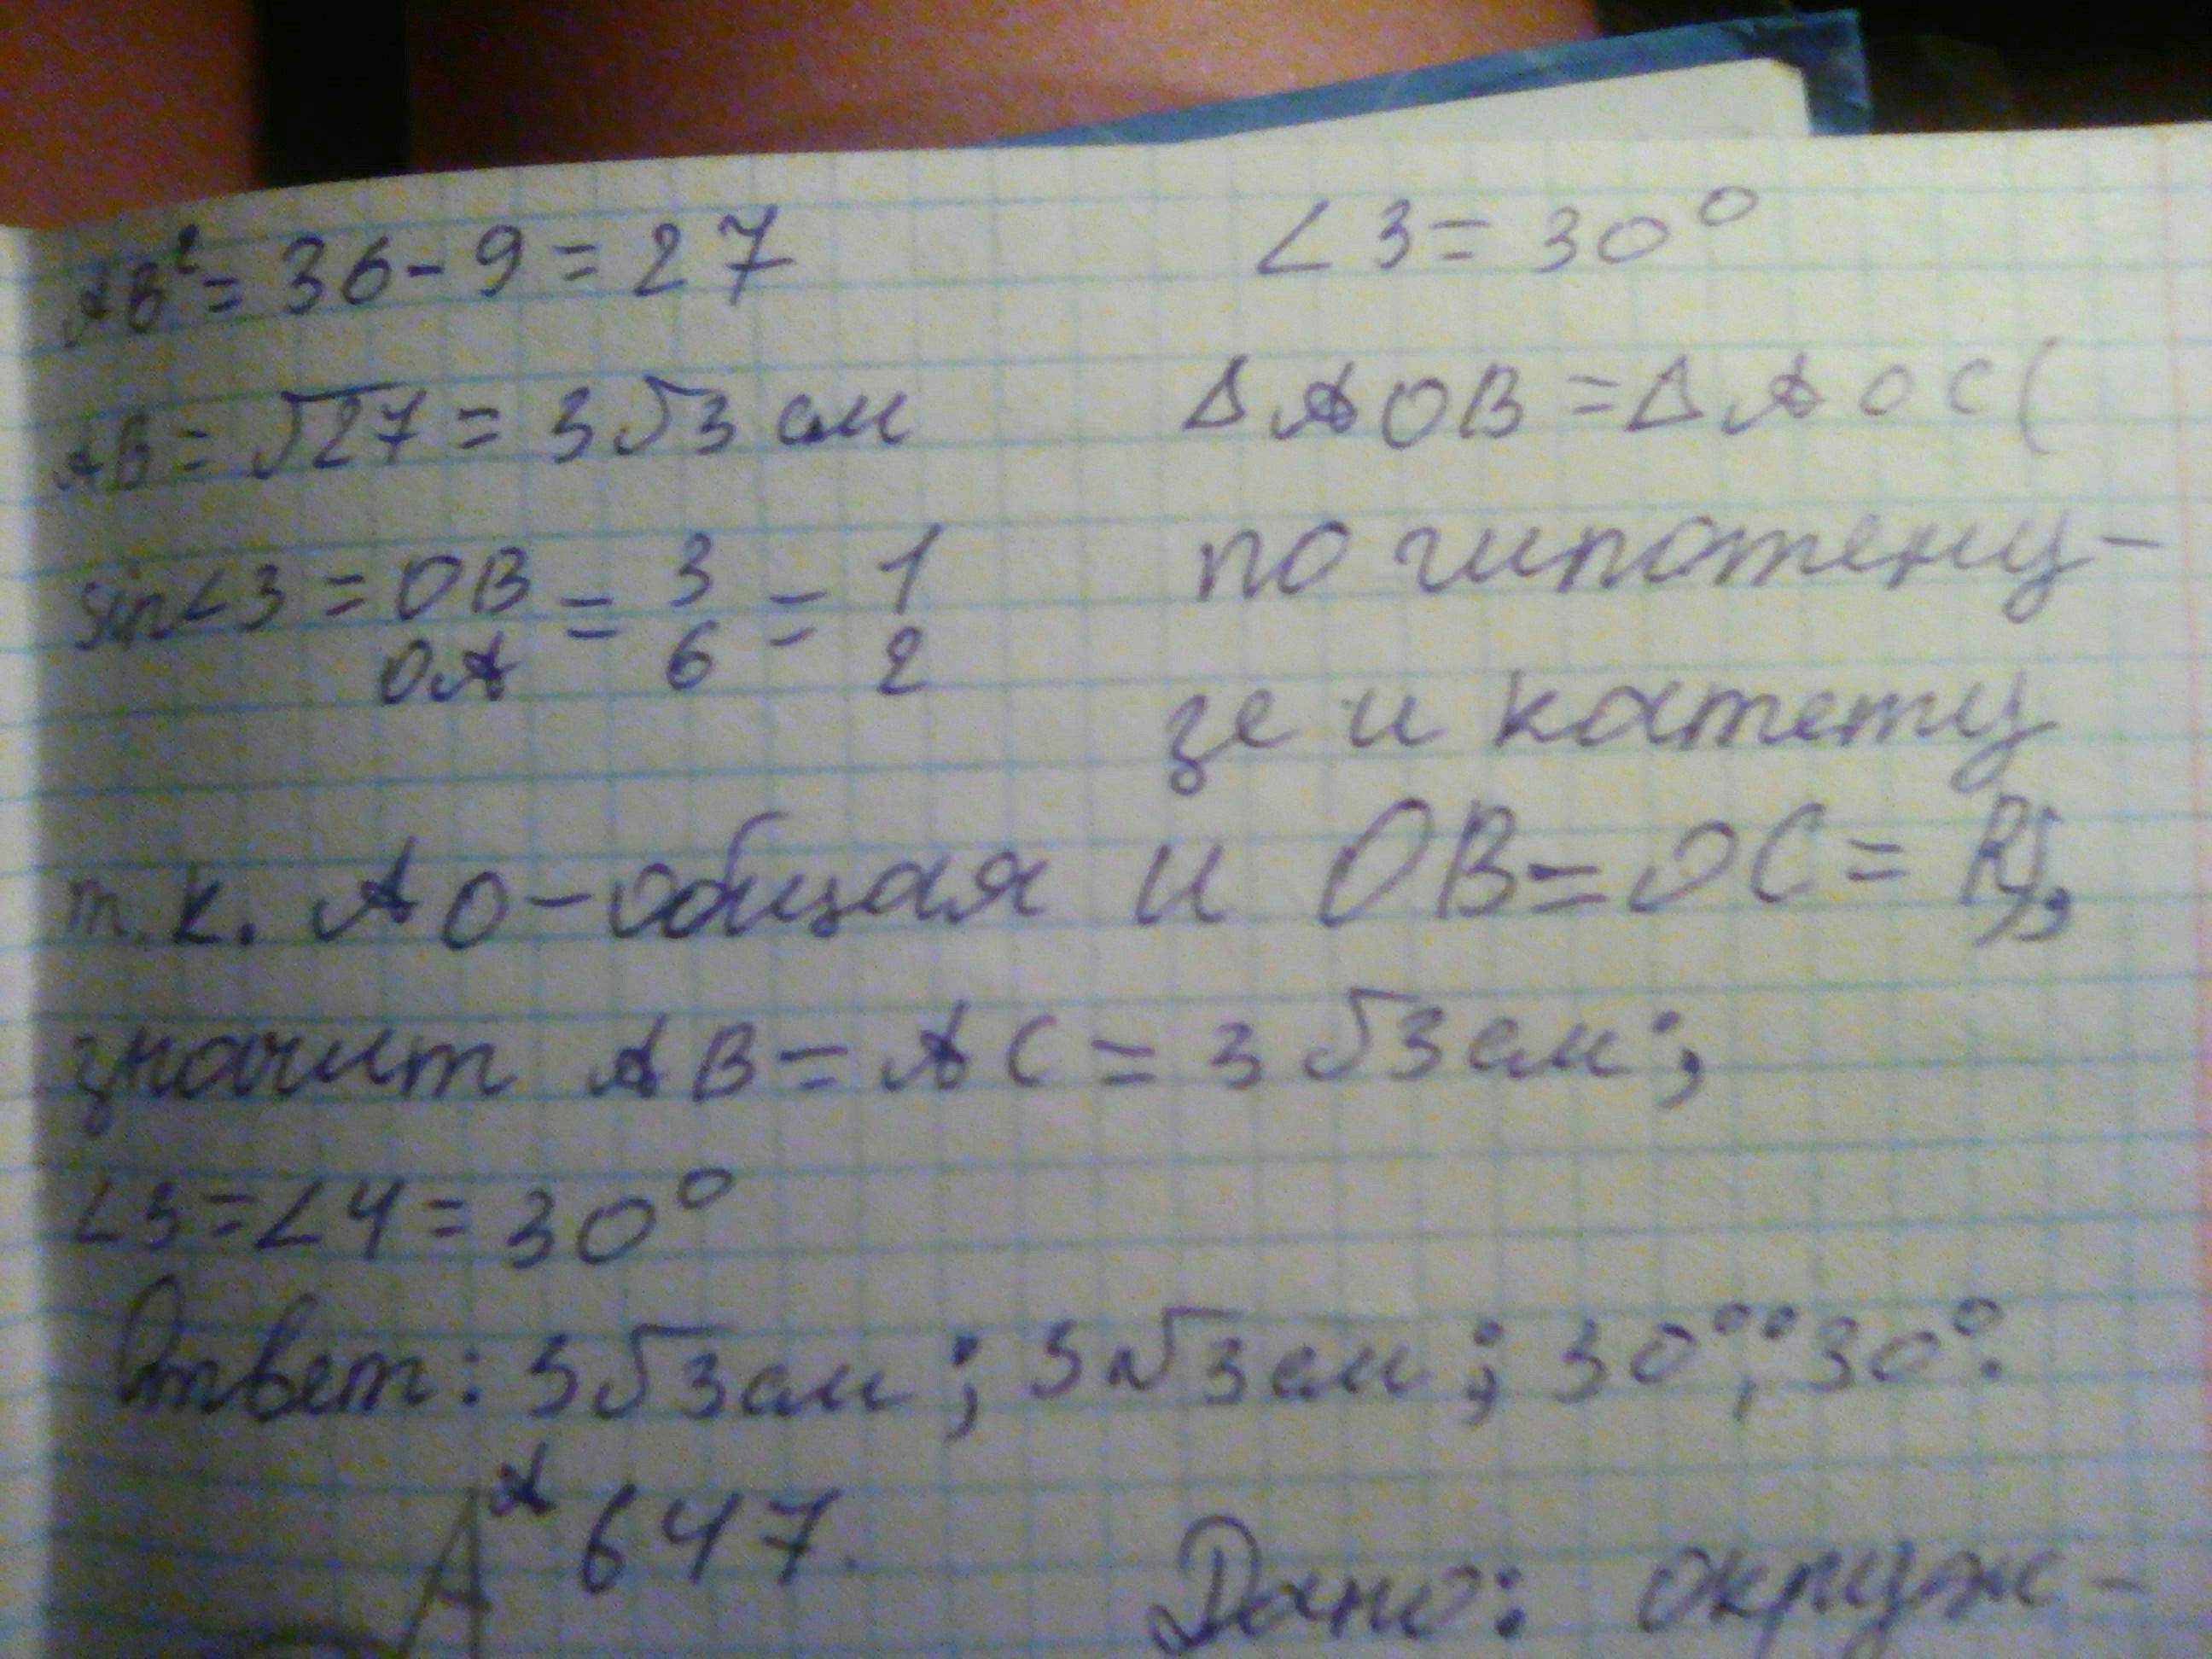 AB² = 36 - 9 = 27
∠3 = 30°
AB = √27 = 3√3 см
ΔAOB = ΔAOC (
sin∠3 = OB/OA = 3/6 = 1/2
по гипотену-
зе и катету
т.к. AO - общая и OB = OC = R),
значит AB = AC = 3√3 см;
∠3 = ∠4 = 30°
Ответ: 3√3 см; 3√3 см; 30°; 30°.
647.
A
Дано: окруж-